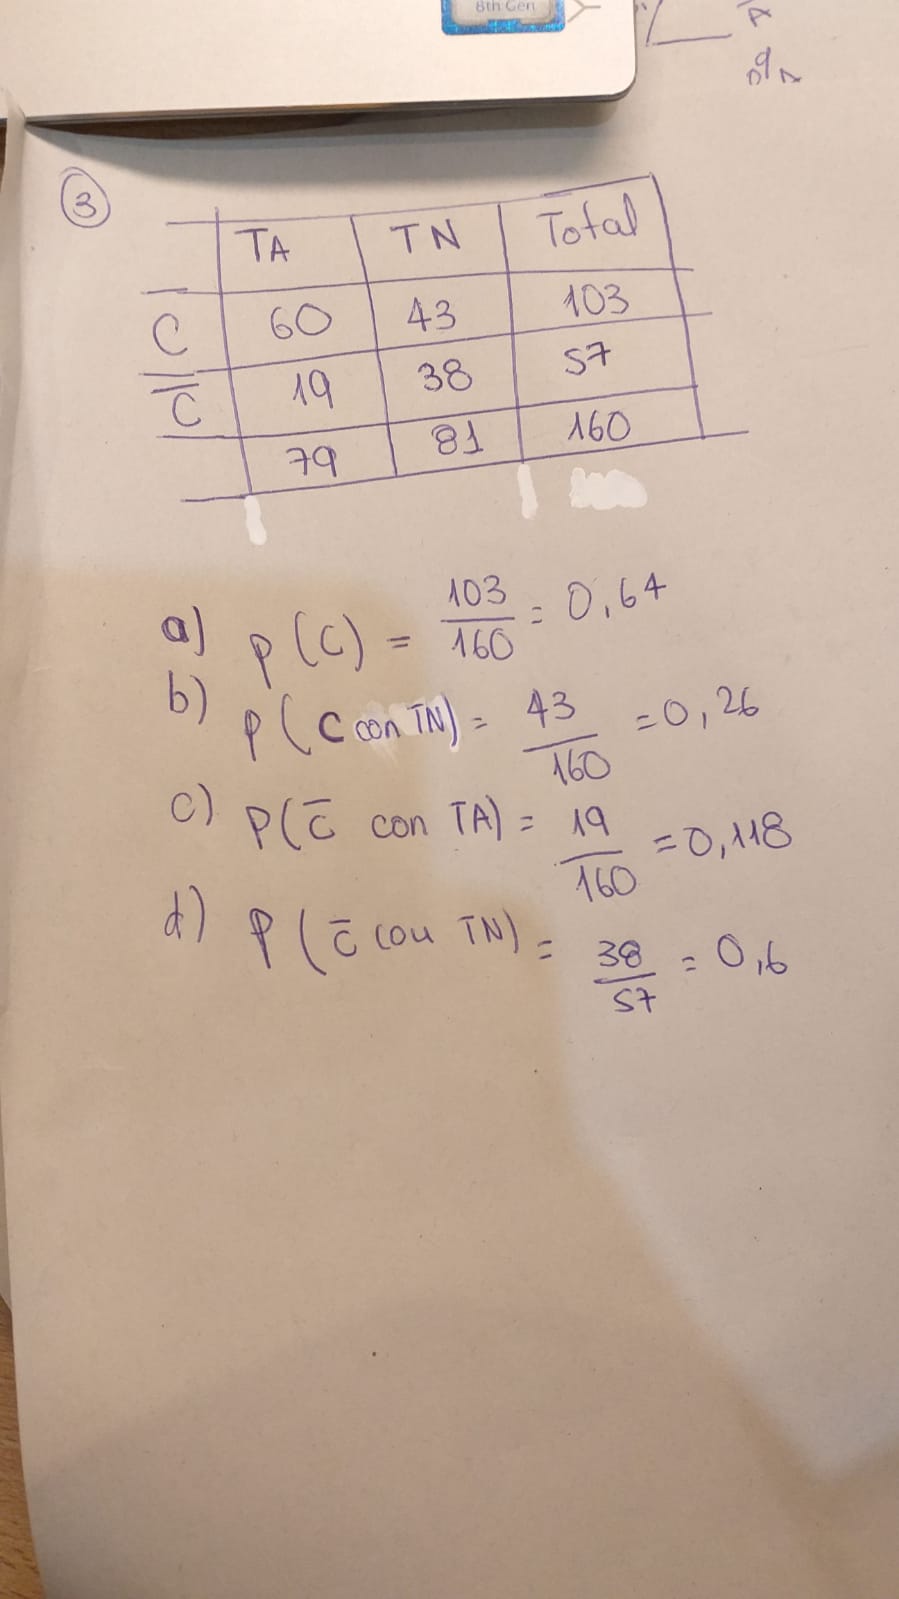 8th Gen
3
TA TN Total
C 60 43 103
C̅ 19 38 57
79 81 160
a) P(C) = 103/160 = 0,64
b) P(C con TN) = 43/160 = 0,26
c) P(C̅ con TA) = 19/160 = 0,118
d) P(C̅ con TN) = 38/57 = 0,6